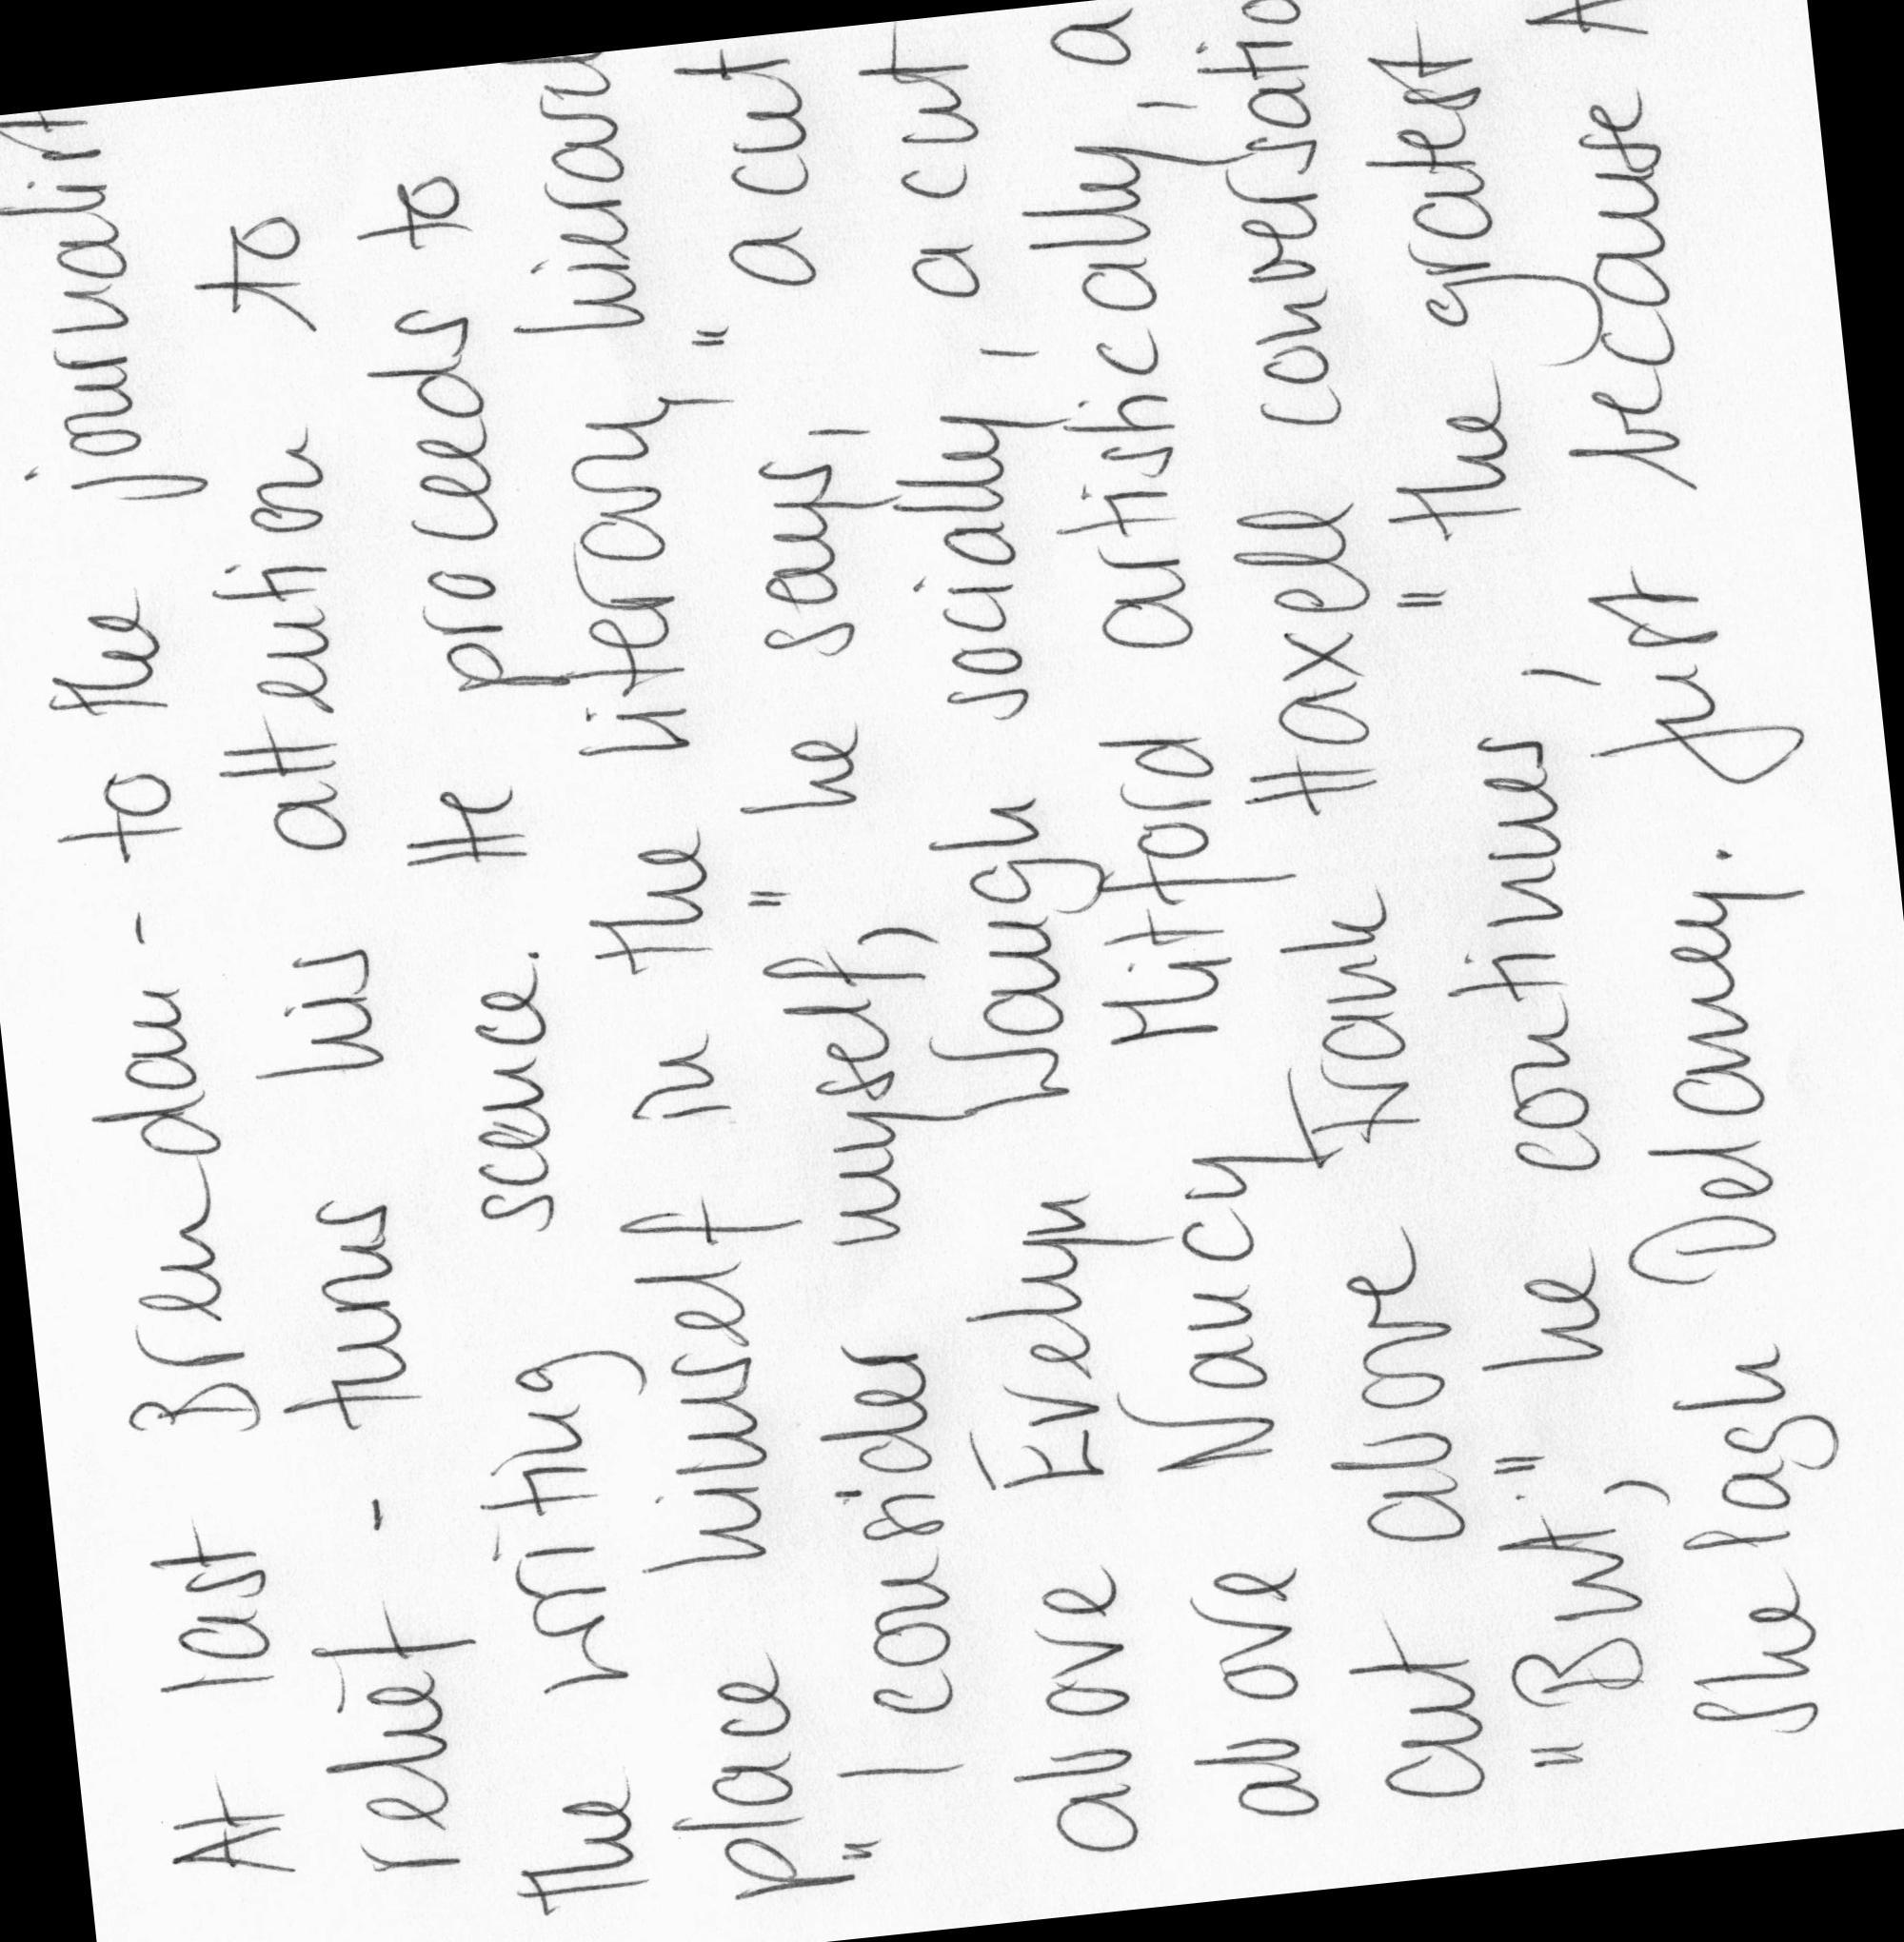 At last Brendan - to the journalist
relief - turns his attention to
the writing scence. He proceeds to
place himself in the literary hierar
"I consider myself," he says, "a cut
above Evelyn Waugh socially, a cut
above Nancy Mitford artistically, a
cut above Frank Haxell conversatio
"But," he continues, "the gratest
she lagh Delaney. Just because